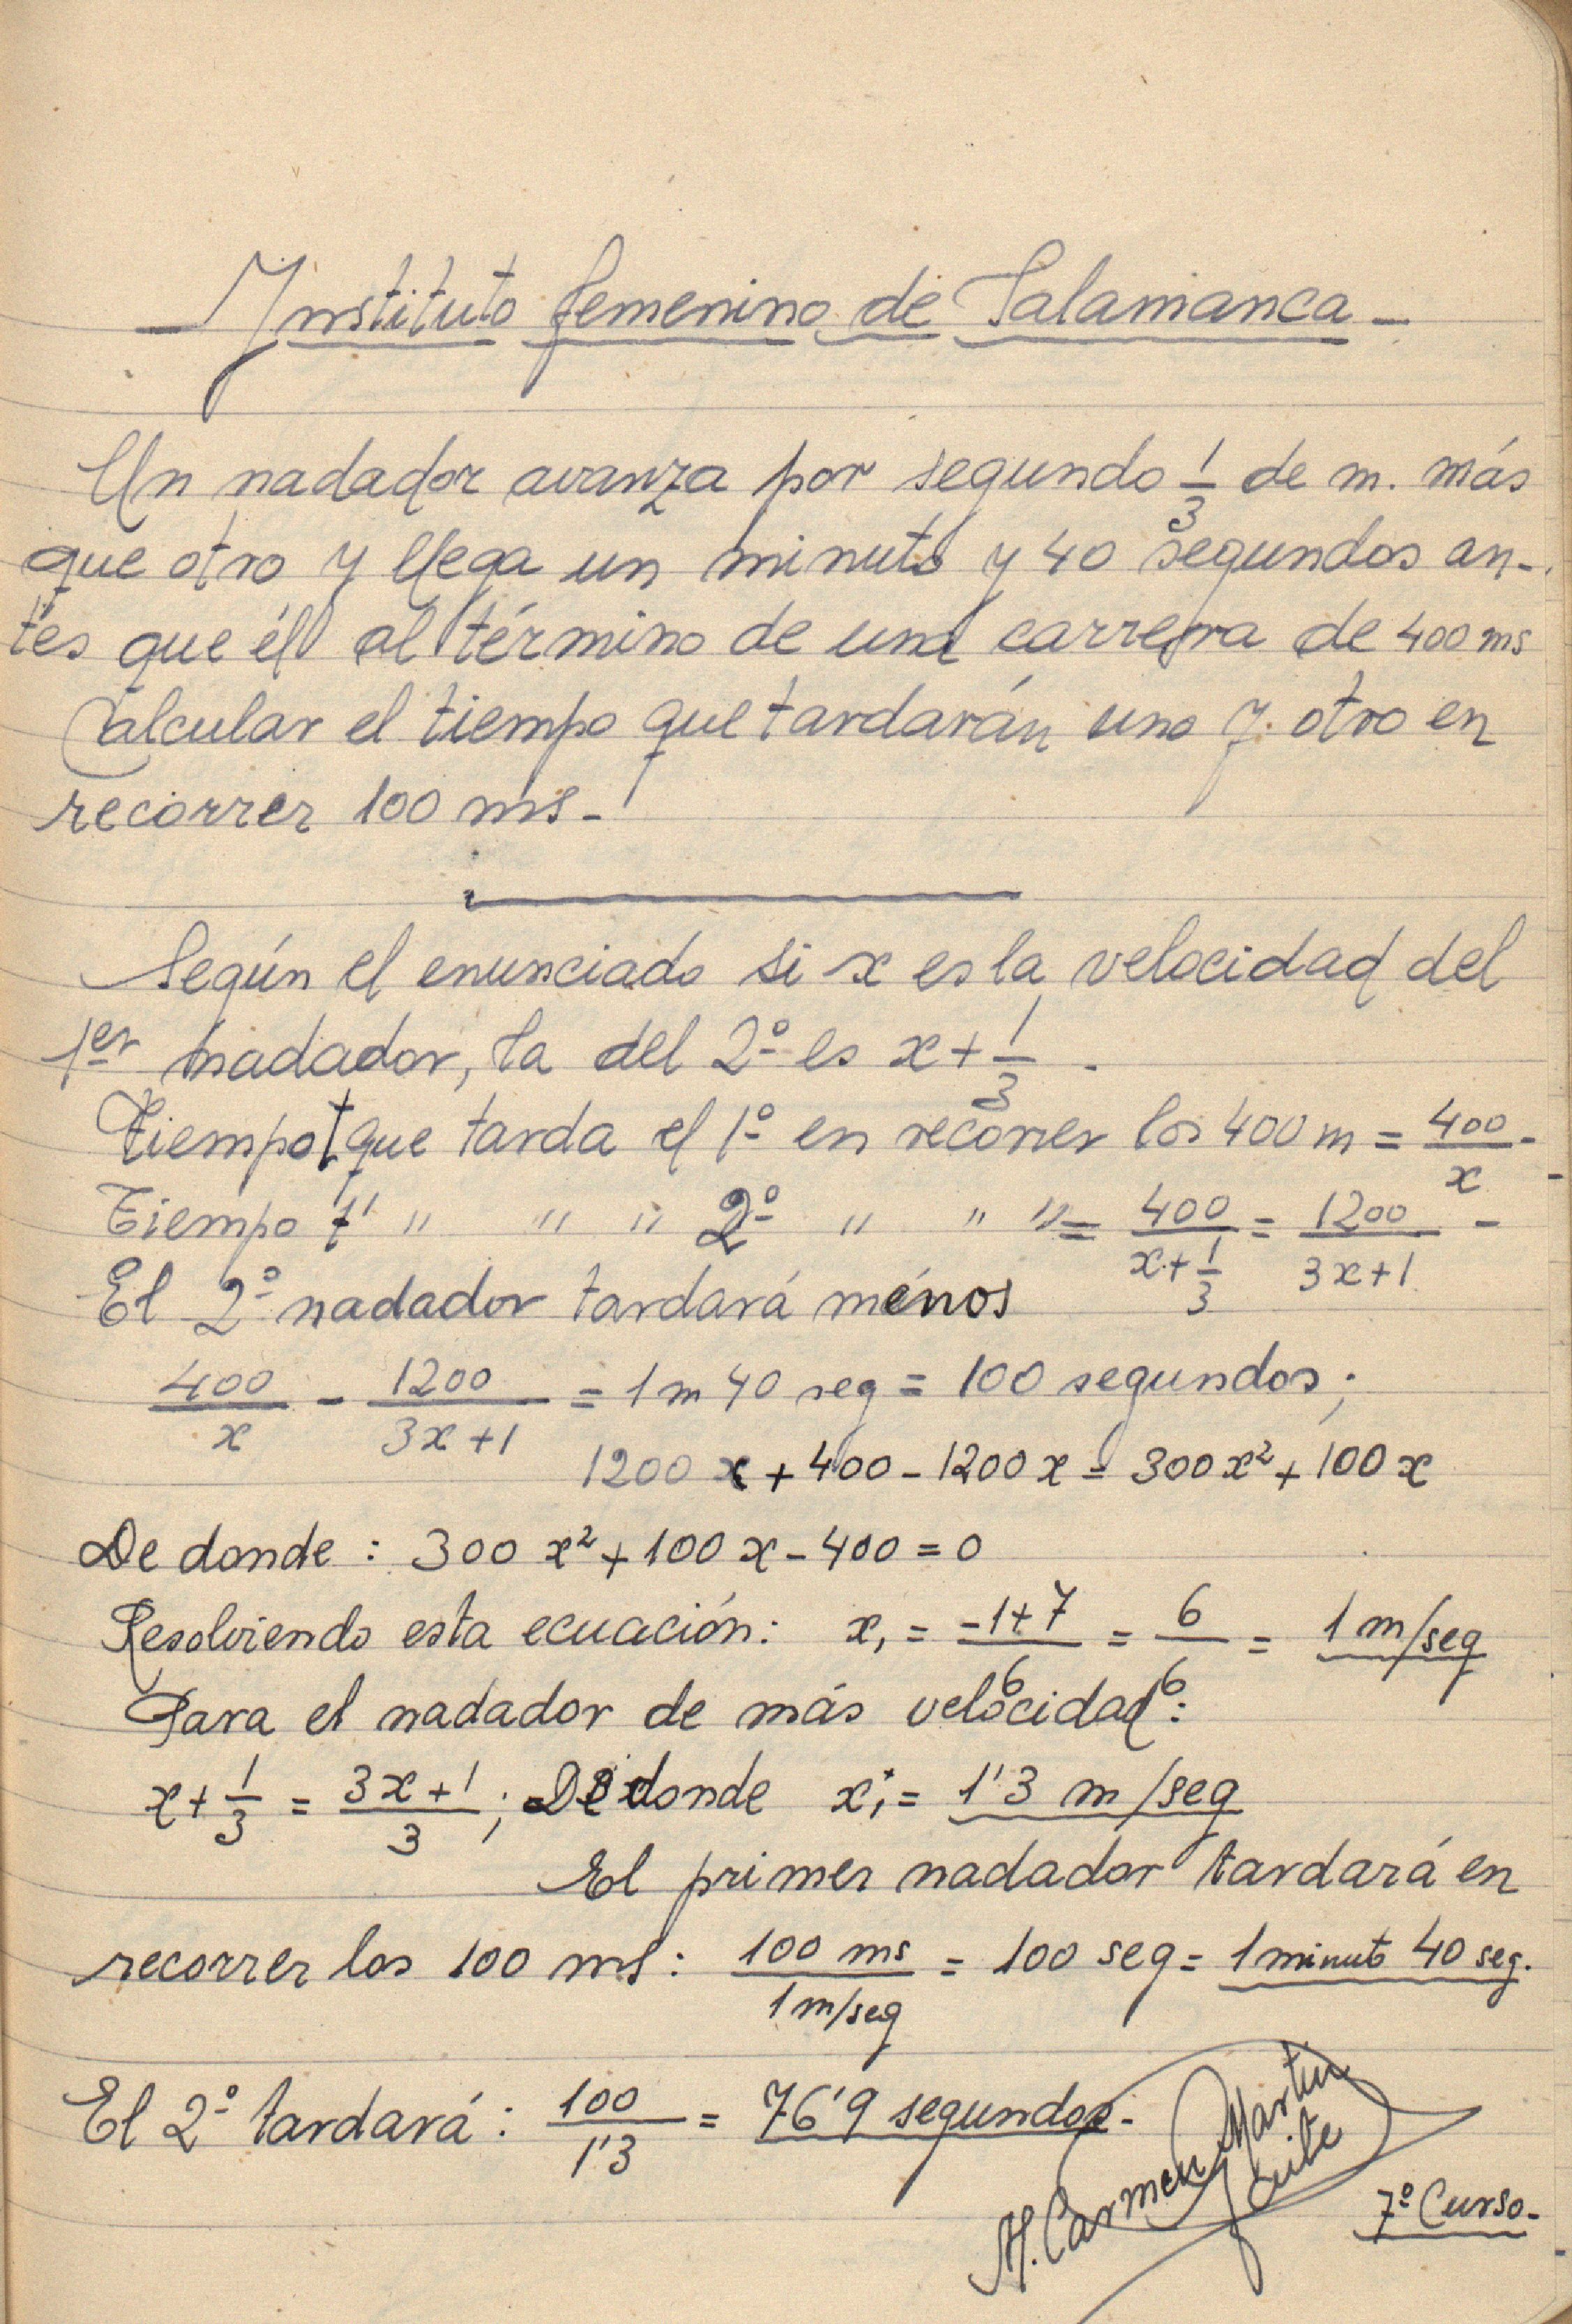 - Instituto femenino de Salamanca -
Un nadador avanza por segundo 1/3 de m. más
que otro y llega un minuto y 40 segundos an-
tes que él al término de una carrera de 400 ms
Calcular el tiempo que tardarán uno y otro en
recorrer 100 ms -
Según el enunciado si x es la velocidad del
1er nadador, la del 2º es x + 1/3 -
Tiempo t que tarda el 1º en recorrer los 400 m = 400/x -
Tiempo t' " " " 2º " " " = 400/(x + 1/3) = 1200/(3x + 1) -
El 2º nadador tardará ménos
400/x - 1200/(3x + 1) = 1 m 40 seg = 100 segundos;
1200 x + 400 - 1200 x = 300 x² + 100 x
De donde : 300 x² + 100 x - 400 = 0
Resolviendo esta ecuación: x₁ = (-1 + 7)/6 = 6/6 = 1 m/seg
Para el nadador de más velocidad:
x + 1/3 = (3x + 1)/3 ; De donde x₁ = 1'3 m/seg
El primer nadador tardará en
recorrer los 100 ms : 100 ms/1 m/seg = 100 seg = 1 minuto 40 seg.
El 2º tardará : 100/1'3 = 76'9 segundos -
M. Carmen Martín
Gaite
7º Curso -